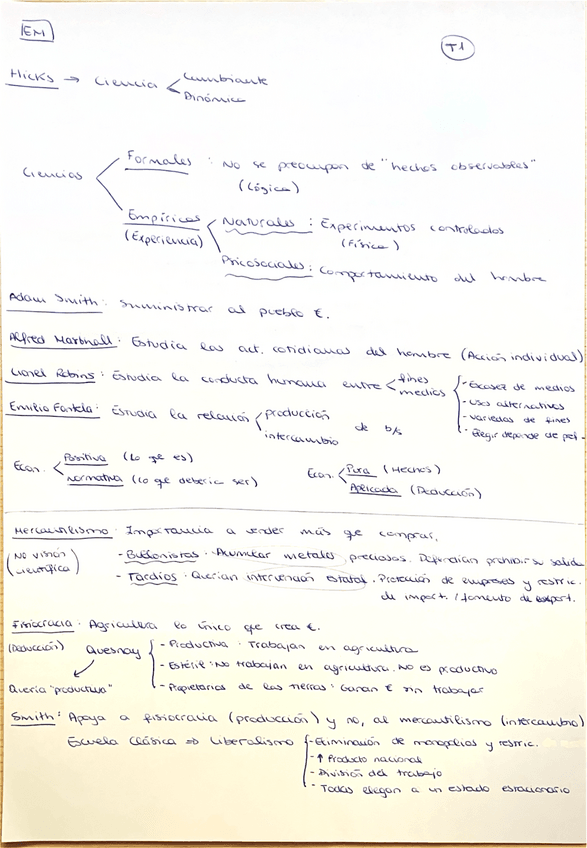 EM
T1
Hicks → Ciencia < Cambiante
Dinámica
Ciencias
Formales : No se preocupan de "hechos observables"
(Lógica)
Empíricas
(Experiencia)
Naturales : Experimentos controlados
(Física)
Psicosociales : Comportamiento del hombre
Adam Smith : Suministrar al pueblo €.
Alfred Marshall : Estudia las act. cotidianas del hombre (Acción individual)
Lionel Robins : Estudia la conducta humana entre < fines
medios
- Escasez de medios
- Usos alternativos
- Variedad de fines
- Elegir depende de pref.
Emilio Fontela : Estudia la relación < producción
intercambio
de b/s
Econ. < Positiva (Lo qe es)
normativa (Lo qe debería ser)
Econ. < Pura (Hechos)
Aplicada (Deducción)
Mercantilismo · Importancia a vender más qe comprar.
(No visión científica)
- Bullonistas · Acumular metales preciosos. Defendían prohibir su salida
- Tardíos · Querían intervención estatal. Protección de empresas y restric.
de import. / fomento de export.
Fisiocracia · Agricultura lo único qe crea €.
(Deducción)
Quesnay
- Productiva · Trabajan en agricultura
- Estéril : No trabajan en agricultura. No es productivo
- Propietarios de las tierras : Ganan € sin trabajar
Quería "productivo"
Smith : Apoya a fisiocracia (producción) y no, al mercantilismo (intercambio)
Escuela Clásica ⇒ Liberalismo
- Eliminación de monopolios y restric.
- ↑ Producto nacional
- División del trabajo
- Todas llegan a un estado estacionario